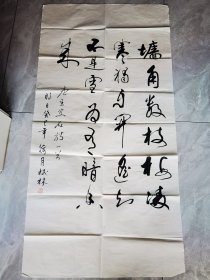 墙角数枝梅凌
寒独自开遥知
不是雪为有暗香
来
王安石诗一首
癸巳年荷月